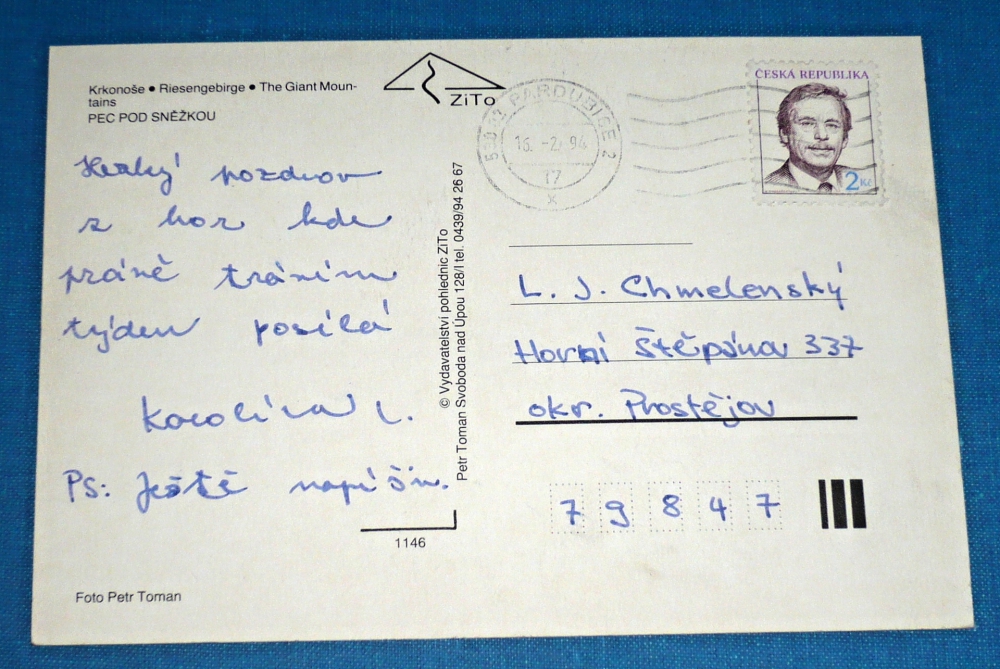 Krkonoše • Riesengebirge • The Giant Moun-
tains
PEC POD SNĚŽKOU
ZiTo
53003 PARDUBICE 2
16. -2. 94
17
x
ČESKÁ REPUBLIKA
2 Kč
Hezký pozdrav
z hor kde
právě trávím
týden posílá
Karolína L.
PS: Ještě napíšu.
© Vydavatelství pohlednic ZiTo
Petr Toman Svoboda nad Úpou 128/I tel. 0439/94 26 67
L. J. Chmelenský
Horní Štěpánov 337
okr. Prostějov
79847
1146
Foto Petr Toman